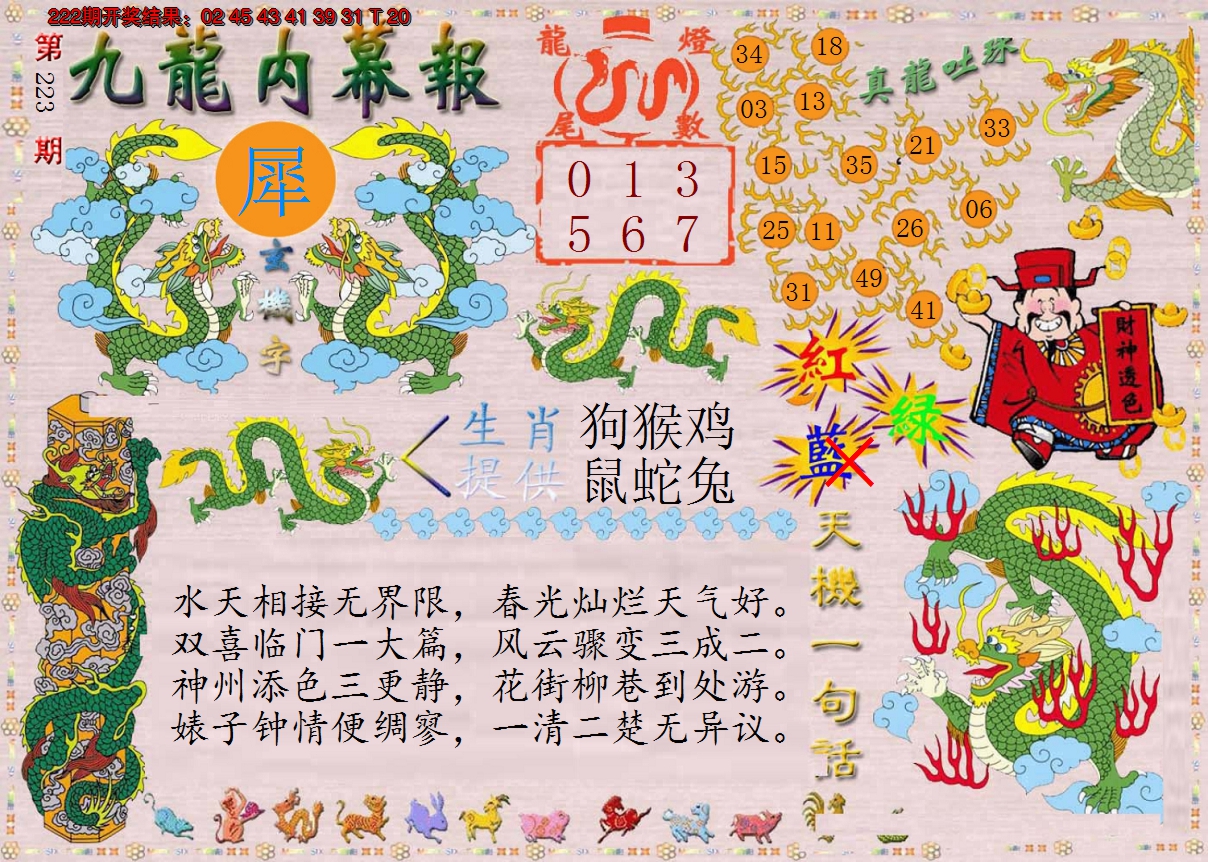 222期开奖结果：02 45 43 41 39 31 T 20
第223期
九龍内幕報
犀
玄機字
龍燈尾數
0 1 3
5 6 7
真龍吐珠
34 18
03 13
15 35 21 33
25 11 26 06
31 49 41
財神透色
紅
绿
藍
生肖 狗猴鸡
提供 鼠蛇兔
天機一句話
水天相接无界限，春光灿烂天气好。
双喜临门一大篇，风云骤变三成二。
神州添色三更静，花街柳巷到处游。
婊子钟情便绸寥，一清二楚无异议。